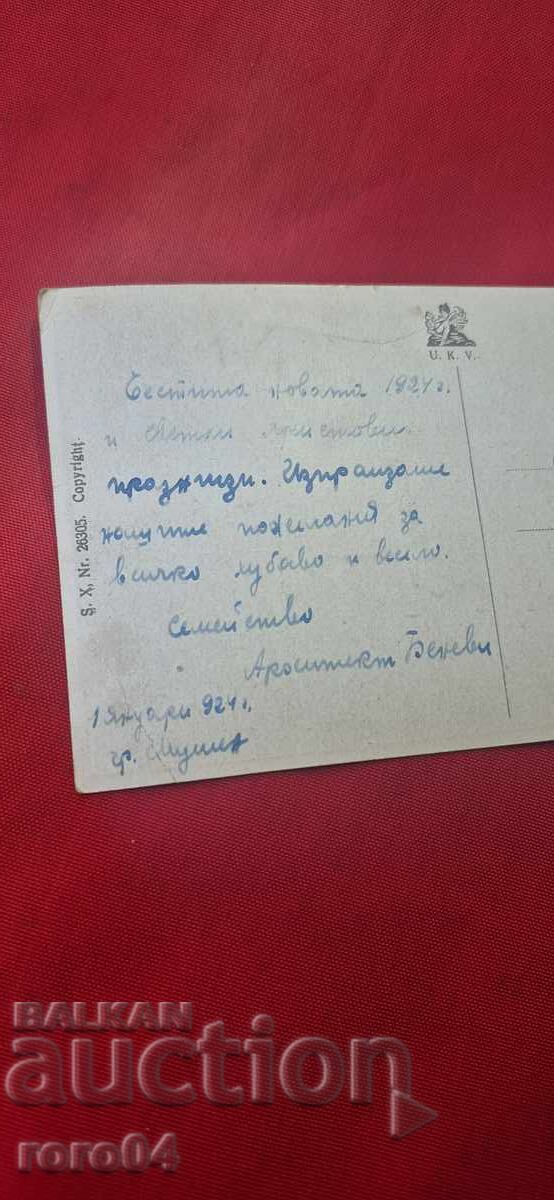 U. K. V.
S. X, Nr. 26305. Copyright.
Честита новата 1924 г.
и светли христови
празници. Изпращаме
нашите пожелания за
всичко хубаво и весело.
Семейство
Архитект Беневи
1 Януари 924 г.
гр. Шумен
BALKAN
auction
roro04